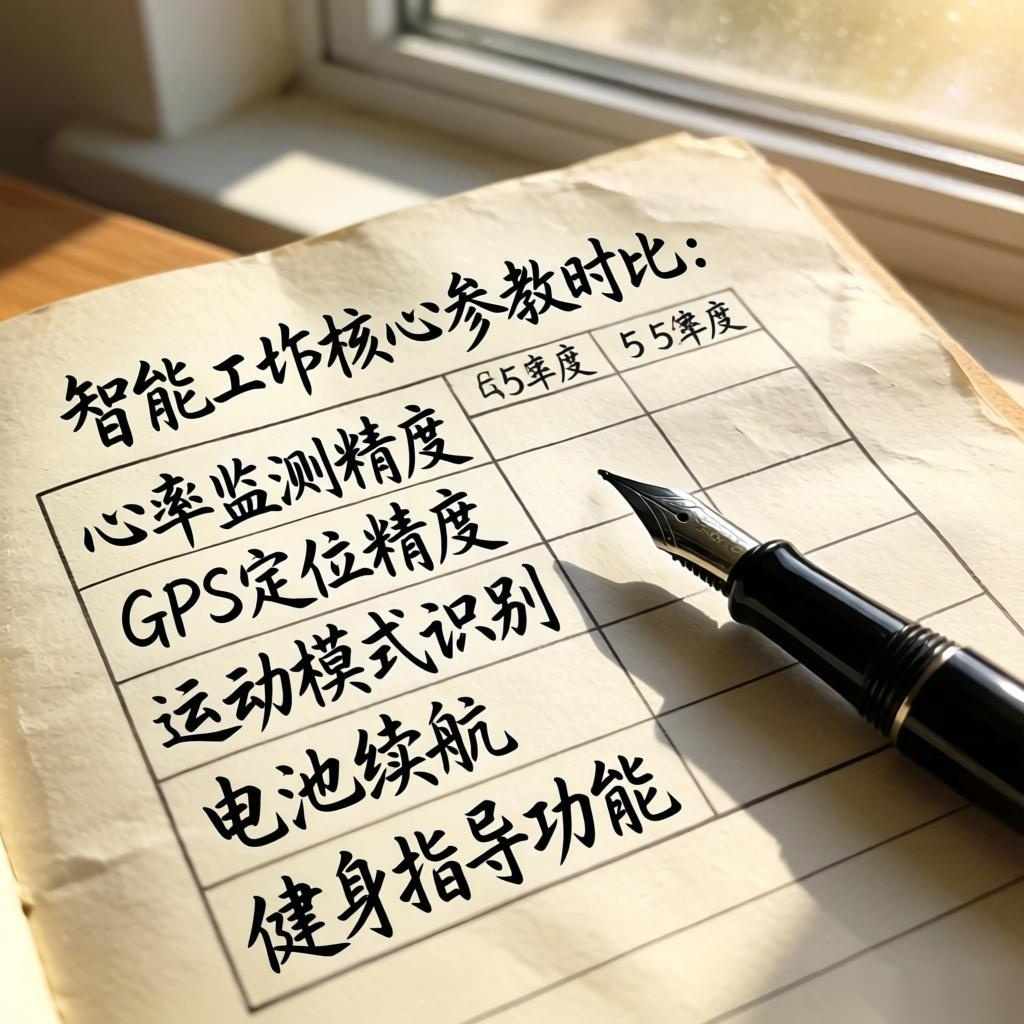 智能工作核心参教时比:
55率度
心率监测精度
GPS定位精度
运动模式识别
电池续航
健身指导功能